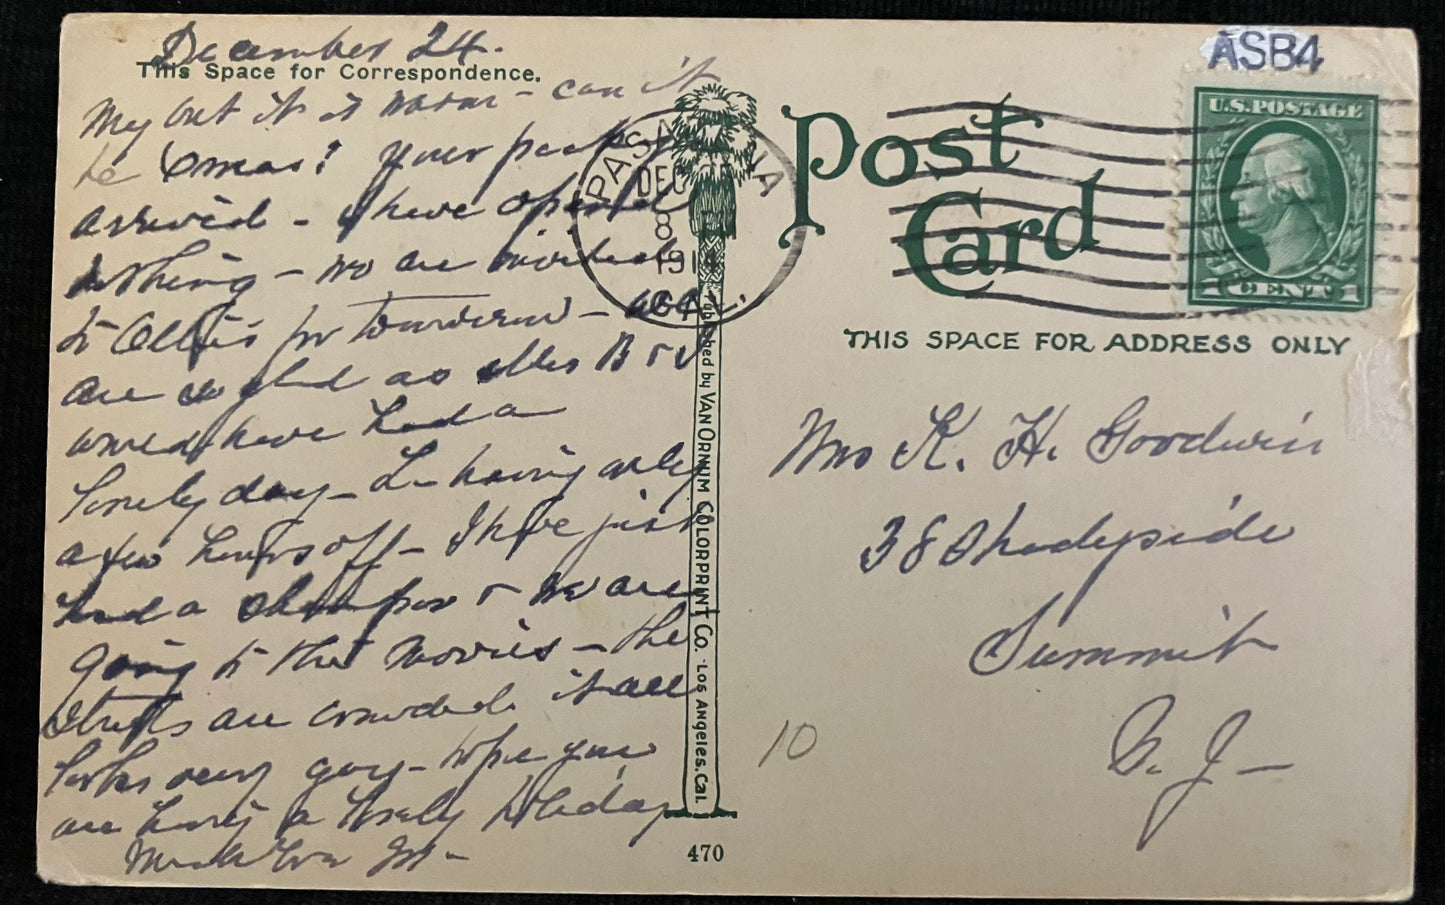 December 24.
This Space for Correspondence.
My but it is warm - can it
be Xmas? Your package
arrived - I have opened
nothing - we are invited
to for tomorrow - and
are so glad as else B & I
would have had a
lonely day - L- having only
a few hours off - I have just
had a shampoo & we are
going to the movies - the
streets are crowded it all
looks very gay - hope you
are having a lovely holiday
Much love
PASADENA
DEC
8
1914
CAL.
Published by VAN ORNUM COLORPRINT CO. LOS ANGELES, CAL.
470
Post
Card
ASB4
U.S. POSTAGE
1 CENT 1
THIS SPACE FOR ADDRESS ONLY
Mrs K. H. Goodwin
38 Shadyside
Summit
N. J-
10